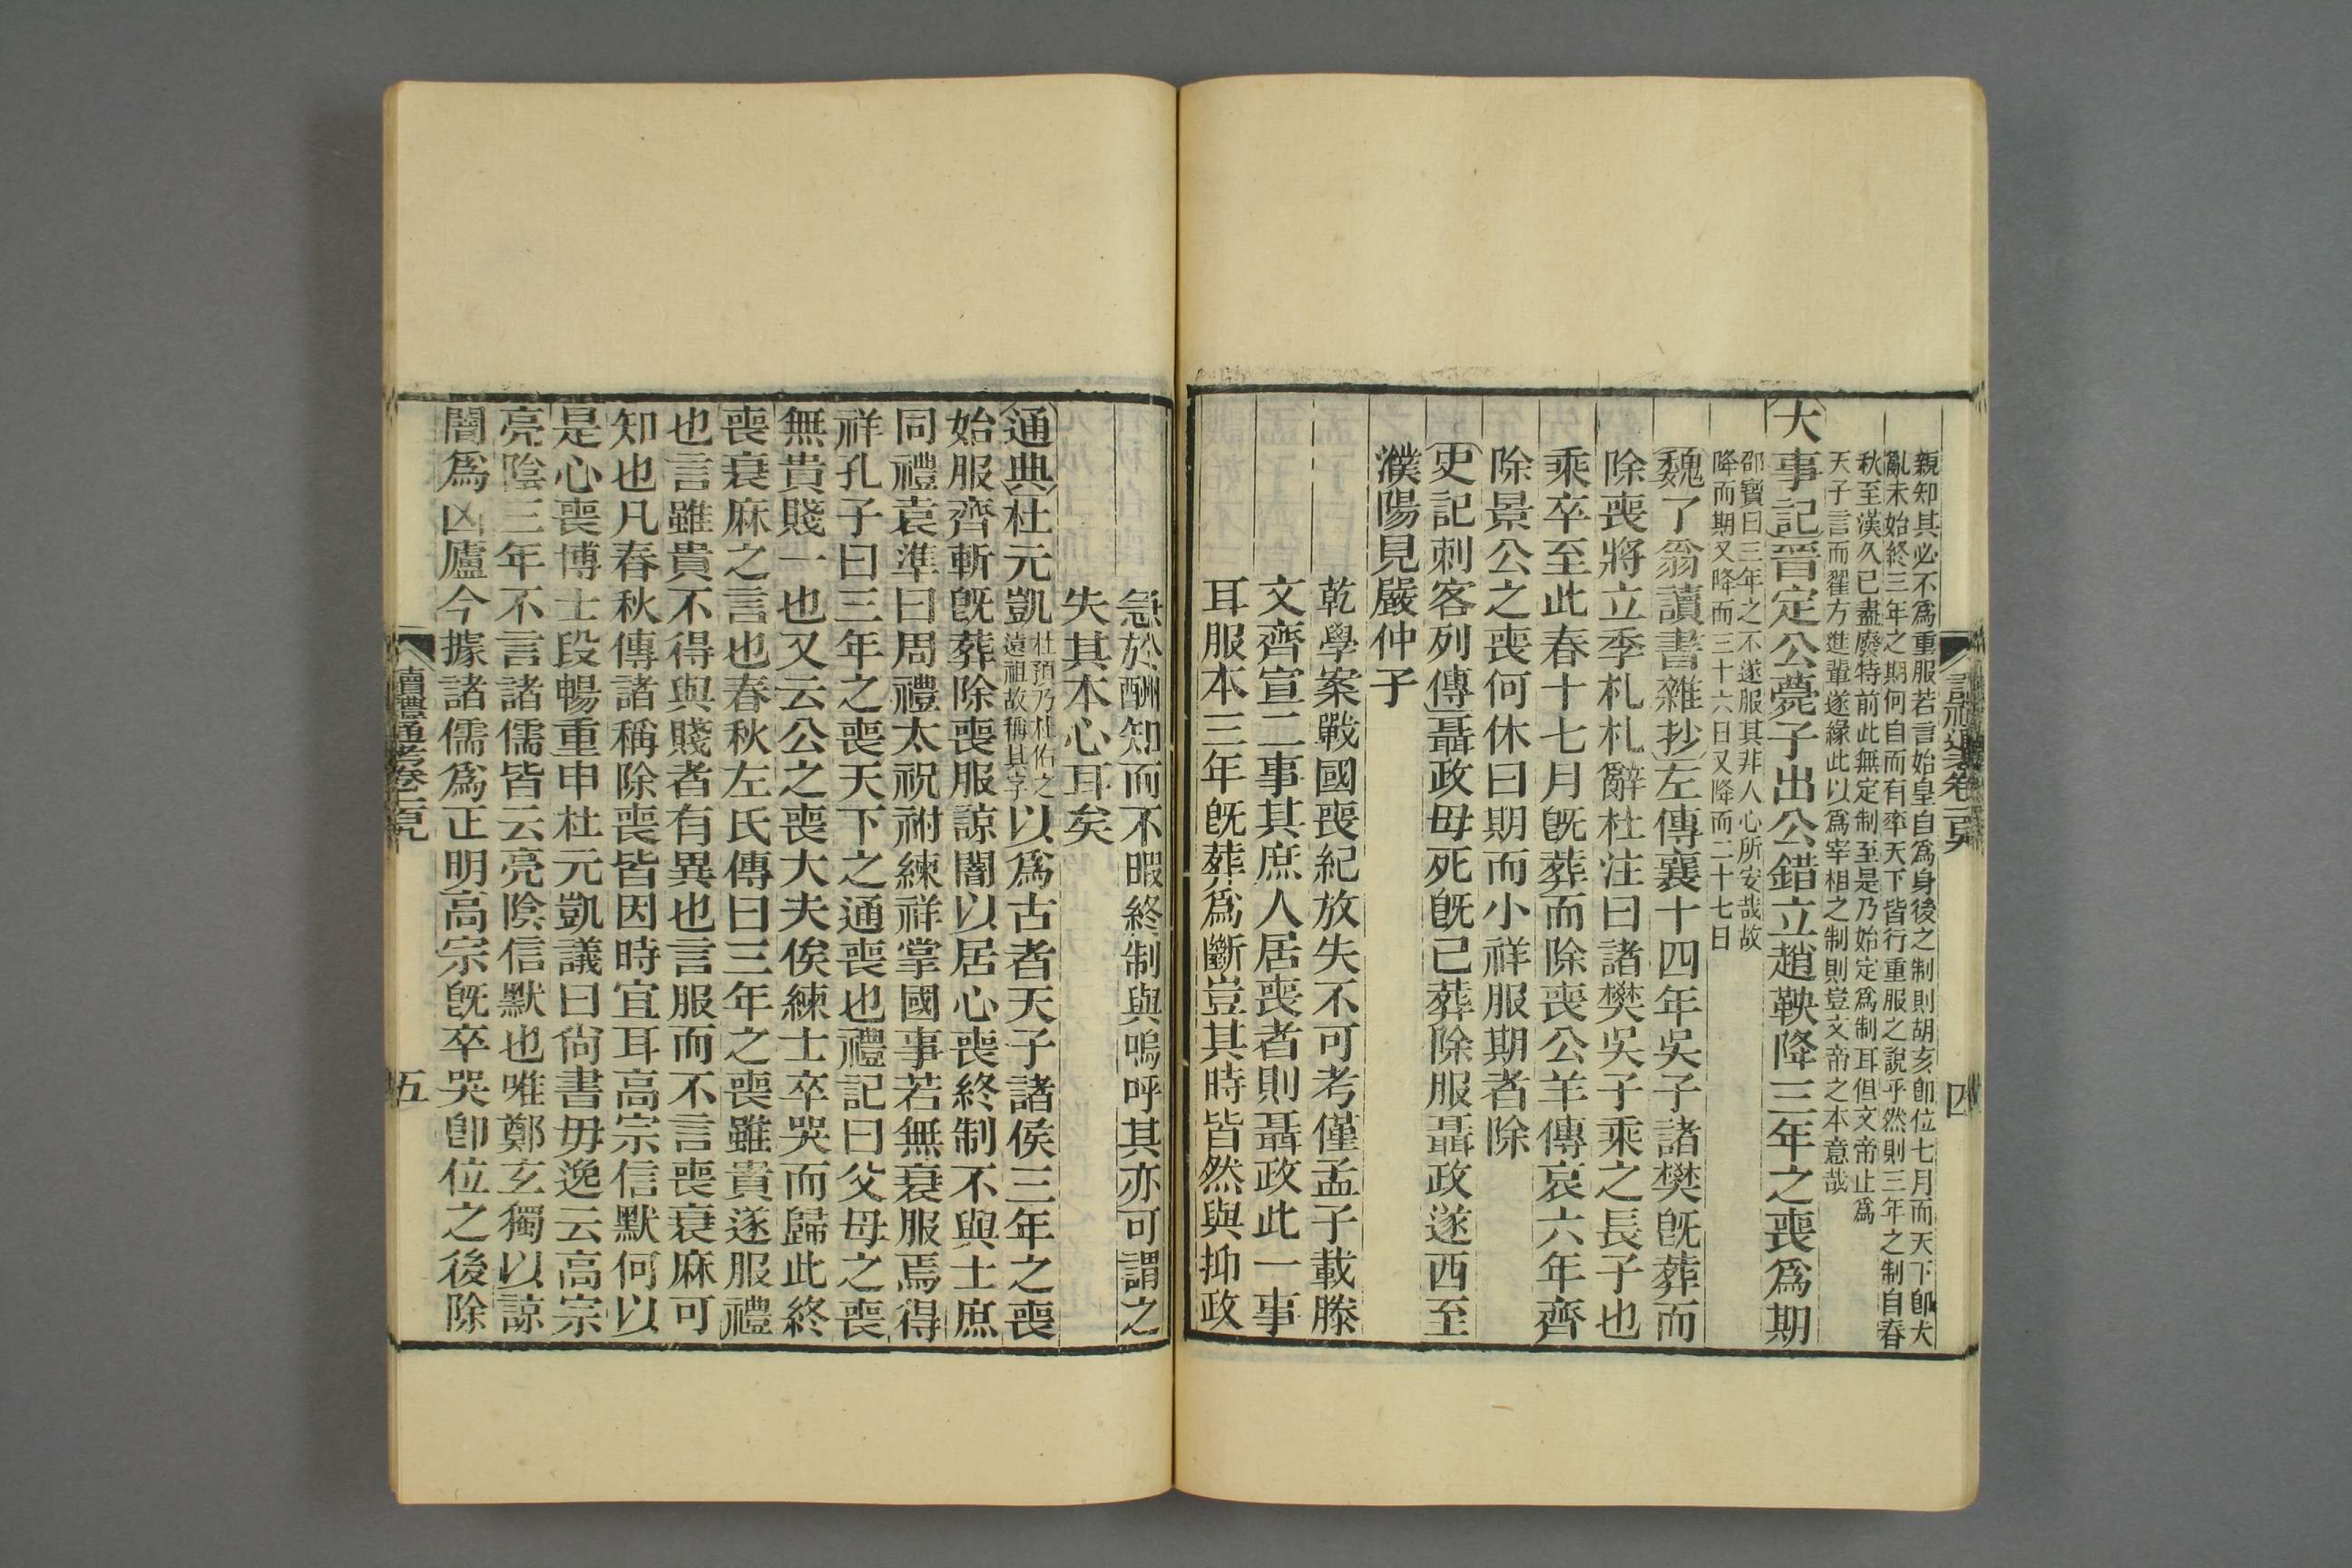 親知其必不爲重服若言始皇自爲身後之制則胡亥卽位七月而天下卽大
亂未始終三年之期何自而有率天下皆行重服之說乎然則三年之制自春
秋至漢久已盡廢特前此無定制至是乃始定爲制耳但文帝止爲
天子言而翟方進輩遂緣此以爲宰相之制則豈文帝之本意哉
大事記晉定公薨子出公錯立趙鞅降三年之喪爲期
邵寶曰三年之不遂服其非人心所安哉故
降而期又降而三十六日又降而二十七日
魏了翁讀書雜抄左傳襄十四年吳子諸樊旣葬而
除喪將立季札札辭杜注曰諸樊吳子乘之長子也
乘卒至此春十七月旣葬而除喪公羊傳哀六年齊
除景公之喪何休曰期而小祥服期者除
史記刺客列傳聶政母死旣已葬除服聶政遂西至
濮陽見嚴仲子
乾學案戰國喪紀放失不可考僅孟子載滕
文齊宣二事其庶人居喪者則聶政此一事
耳服本三年旣葬爲斷豈其時皆然與抑政
四
急於酬知而不暇終制與嗚呼其亦可謂之
失其本心耳矣
通典杜元凱
杜預乃杜佑之
遠祖故稱其字
以爲古者天子諸侯三年之喪
始服齊斬旣葬除喪服諒闇以居心喪終制不與士庶
同禮袁準曰周禮太祝祔練祥掌國事若無衰服焉得
祥孔子曰三年之喪天下之通喪也禮記曰父母之喪
無貴賤一也又云公之喪大夫俟練士卒哭而歸此終
喪衰麻之言也春秋左氏傳曰三年之喪雖貴遂服禮
也言雖貴不得與賤者有異也言服而不言喪衰麻可
知也凡春秋傳諸稱除喪皆因時宜耳高宗信默何以
是心喪博士段暢重申杜元凱議曰尙書毋逸云高宗
亮陰三年不言諸儒皆云亮陰信默也唯鄭玄獨以諒
闇爲凶廬今據諸儒爲正明高宗旣卒哭卽位之後除
讀禮通考卷
五